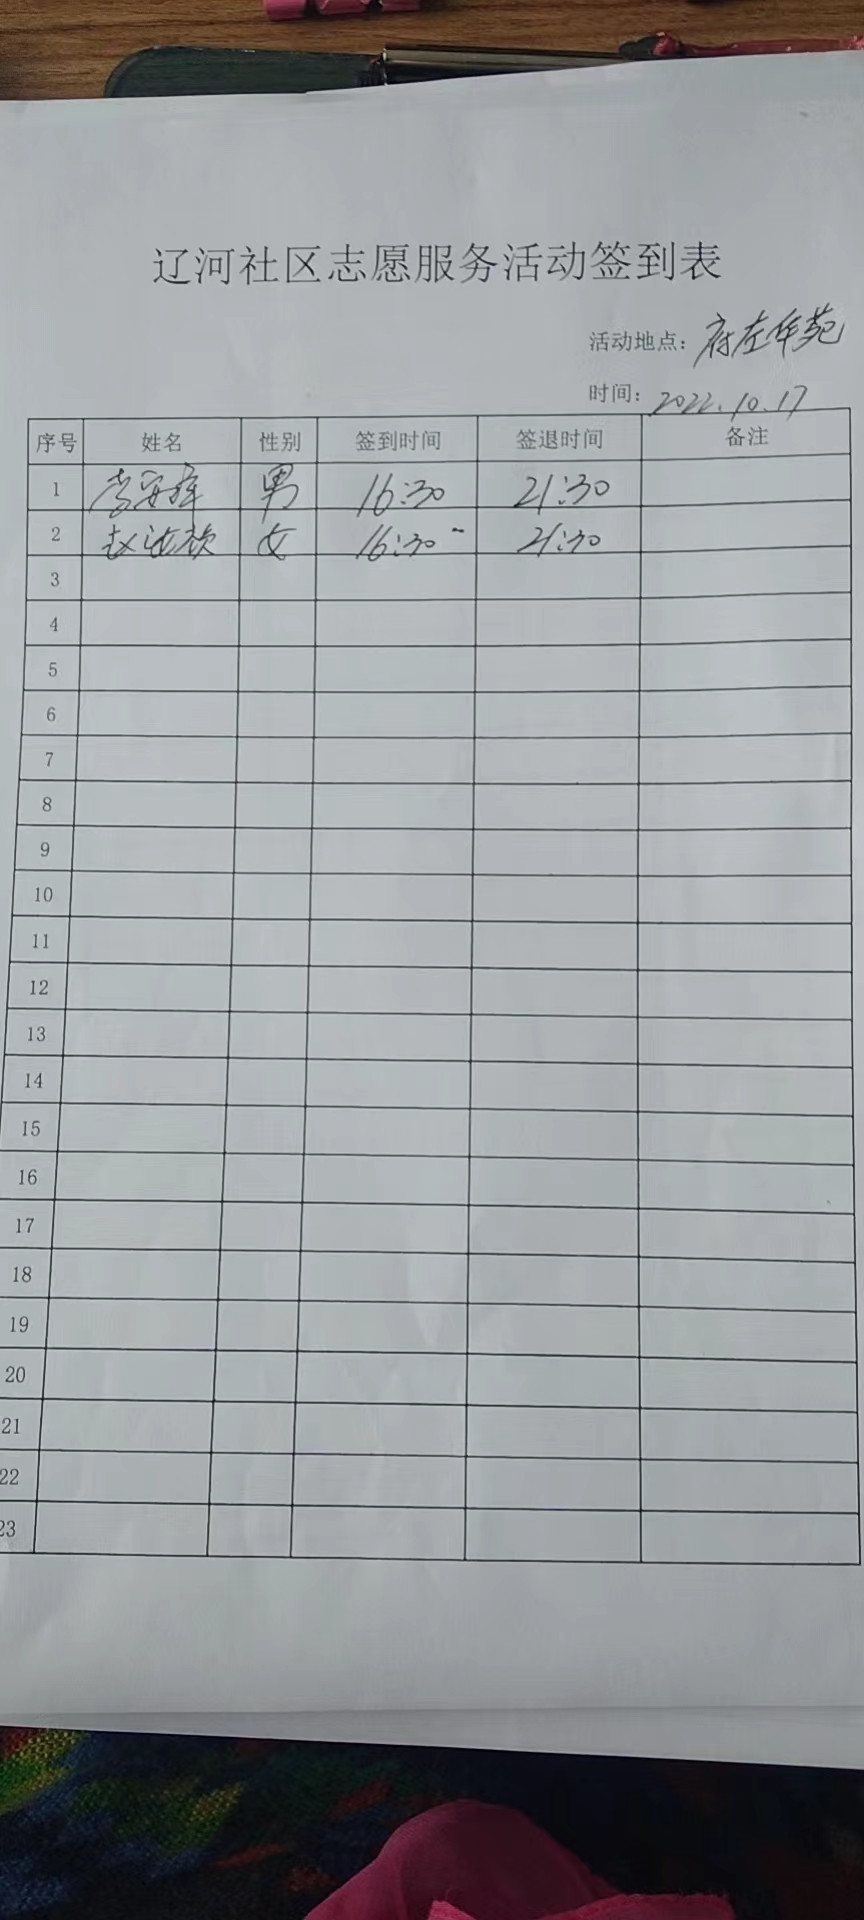 辽河社区志愿服务活动签到表
活动地点：府左华苑
时间：2022.10.17
序号 姓名 性别 签到时间 签退时间 备注
1 李安 男 16:30 21:30
2 赵 女 16:30 21:30
3
4
5
6
7
8
9
10
11
12
13
14
15
16
17
18
19
20
21
22
23